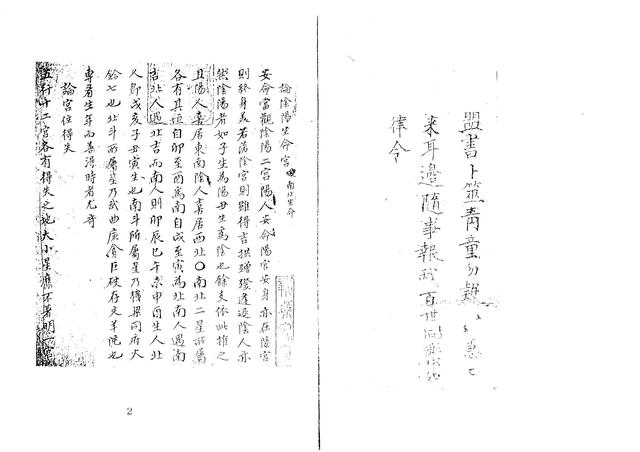 盟書卜筮青童勿難
來耳邊隨事報 百世
律令
論陰陽生命宮 南北生命
安命當觀陰陽二宮陽人安命陽宮安身亦在陽宮
則終身美若落陰宮則雖得吉拱蹭蹬 陰人亦
然陰陽者如子生為陽丑生為陰也餘支依此推之
且陽人喜居東南陰人喜居西北〇南北二星所屬
各有其垣自卯至酉為南自戌至寅為北南人遇南
吉北人遇北吉而南人則卯辰巳午未申酉生人北
人即戌亥子丑寅生也南斗所屬星乃機梁同府火
鈴七也北斗所屬星乃武曲廉貪巨破存文羊陀也
專看生年而善得時者尤奇
論宮位得失
五行十二宮各有得失之地大小星 不著明一宮
2